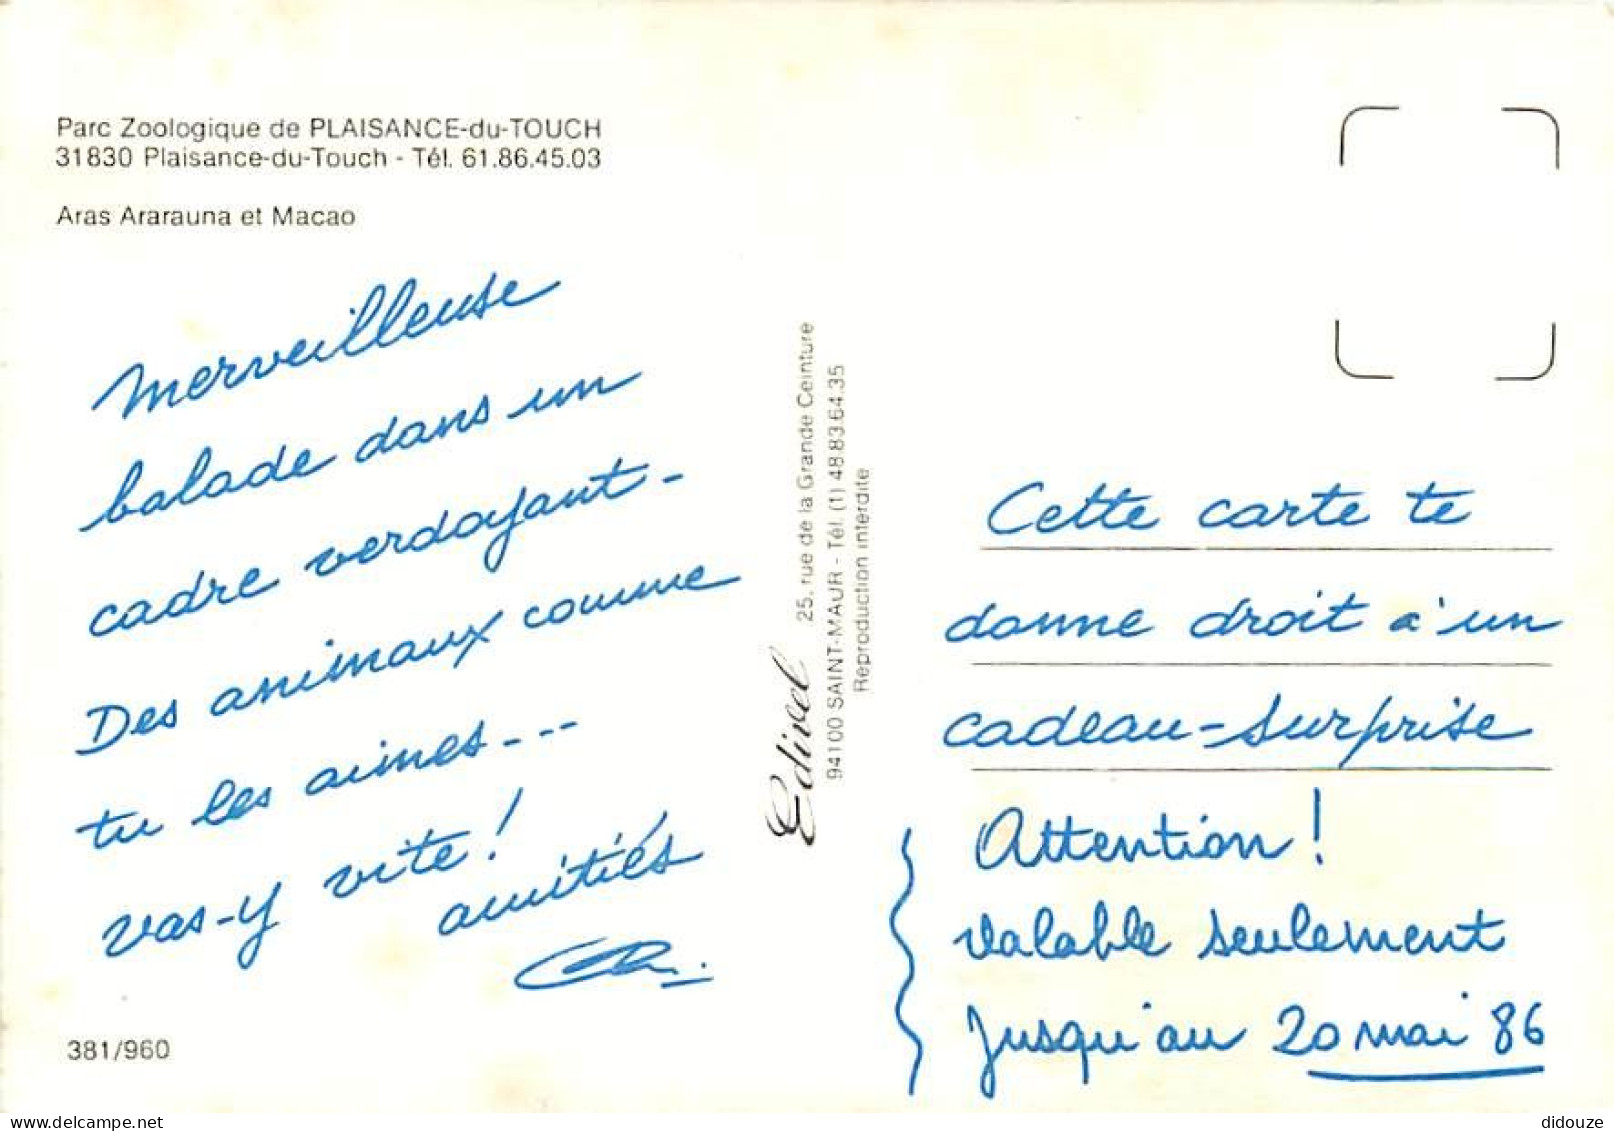 Parc Zoologique de PLAISANCE-du-TOUCH
31830 Plaisance-du-Touch - Tél. 61.86.45.03
Aras Ararauna et Macao
Merveilleuse
balade dans un
cadre verdoyant-
Des animaux comme
tu les aimes---
vas-y vite!
amitiés
381/960
Edivel
25, rue de la Grande Ceinture
94100 SAINT-MAUR - Tél. (1) 48.83.64.35
Reproduction interdite
Cette carte te
donne droit à un
cadeau-surprise
Attention!
valable seulement
jusqu'au 20 mai 86
delcampe.net
didouze